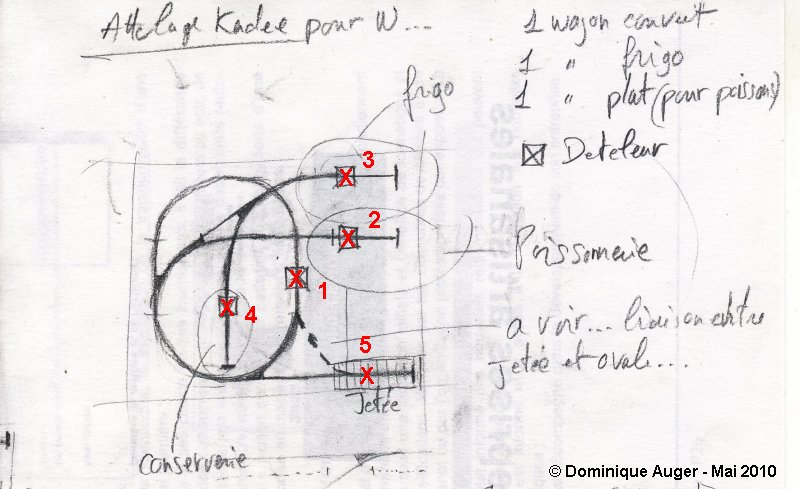 Attelage Kadee pour W...
1 wagon couvert
1 " frigo
1 " plat (pour poissons)
Deteleur
frigo
3
2
Poissonnerie
1
4
a voir... liaison entre
Jetée et ovale....
5
Jetée
Conserverie
© Dominique Auger - Mai 2010